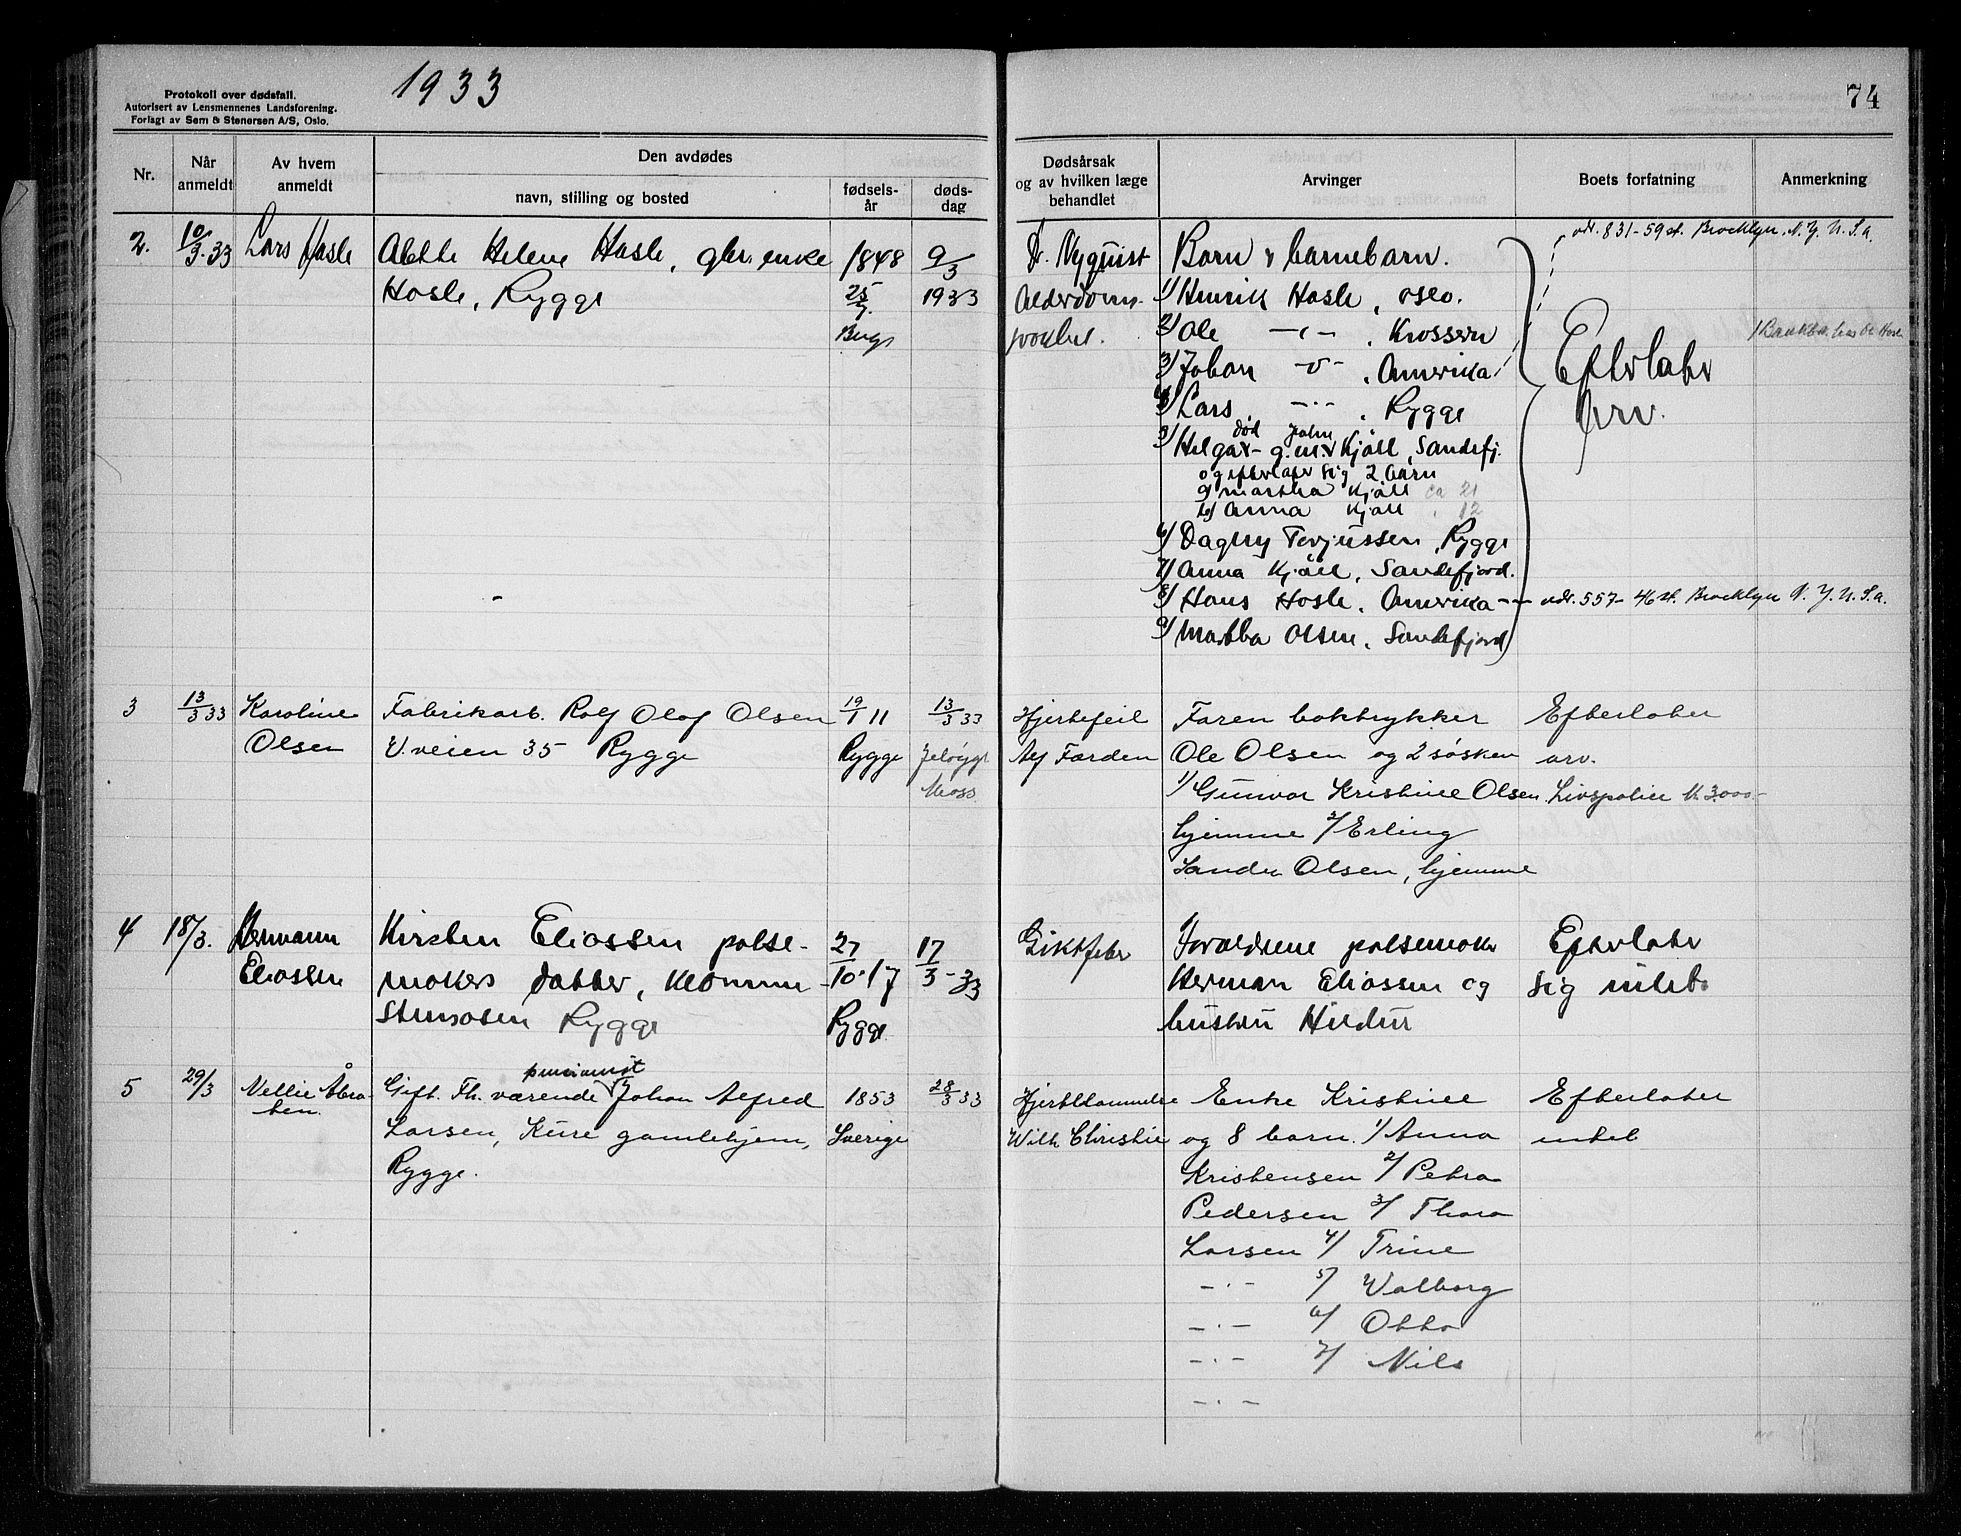 1933
74
Protokoll over dødsfall.
Autorisert av Lensmennenes Landsforening.
Forlagt av Sem & Stenersen A/S, Oslo.
Nr.
Når anmeldt
Av hvem anmeldt
Den avdødes
navn, stilling og bosted
fødsels-år
døds-dag
Dødsårsak og av hvilken læge behandlet
Arvinger
Boets forfatning
Anmerkning
2.
10/3.33
Lars Hasle
Alette Helene Hasle, gbr. enke
Hasle, Rygge
1848
25/7.
9/3
1933
Dr. Nyquist
Alderdoms-
Barn & barnebarn.
1/ Henrik Hasle, Oslo.
2/ Ole -"- , Krossern
3/ Johan -"- , Amerika
4/ Lars -"- , Rygge
død
5/ Helga - g.m. Kjöll, Sandefj.
og efterlater sig 2 barn
a) Martha Kjöll ca 21
b) Anna Kjöll " 12
6/ Dagny Terjussen, Rygge
7/ Anna Kjöll, Sandefjord.
8/ Hans Hasle, Amerika -- adr. 557-46 st. Brocklyn N.Y. U.S.a.
9/ Martha Olsen, Sandefjord
adr. 831-59 st. Brocklyn, N.Y. U.S.a.
Efterlater
arv.
3
13/3 33
Karoline
Olsen
Fabrikarb. Rolf Olaf Olsen
V.veien 35 Rygge
19/1 11
Rygge
13/3 33
Jeløygt
Moss
Hjertefeil
Alf Færden
Faren boktrykker
Ole Olsen og 2 søsken
1/ Gunvor Kristine Olsen
hjemme 2/ Erling
Sander Olsen, hjemme
Efterlater
arv.
Livspolice K 3.000.-
4
18/3.
Hermann
Eliassen
Kirsten Eliassen pølse-
makers datter,
Stenåsen Rygge
27/10-17
Rygge
17/3-33
Giktfeber
Foreldrene pølsemaker
Herman Eliassen og
hustru Hildur
Efterlater
sig intet.
5
29/3
Nellie Åbra-
ten.
pensionist
Gift. Fh. værende Johan Alfred
Larsen, Kure gamlehjem,
Rygge.
1853
Sverige
28/3 33
Hjertelammelse
Wilh. Christie
Enke Kristine
og 8 barn. 1/ Anna
Kristensen 2/ Petra
Pedersen 3/ Thora
Larsen 4/ Trine
-"- 5/ Valborg
-"- 6/ Otto
-"- 7/ Nils
-"-
Efterlater
intet